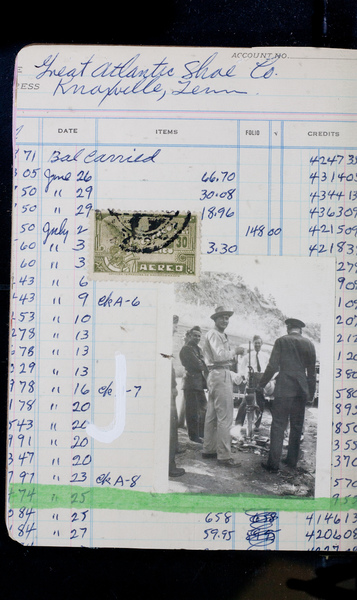 ACCOUNT NO.
Great Atlantic Shoe Co.
ESS Knoxville, Tenn
DATE ITEMS FOLIO √ CREDITS
71 Bal Carried 42473
05 June 26 66.70 431405
50 " 29 30.08 434413
50 " 29 18.96 436309
50 July 2 148 00 421509
60 " 3 3.30 42183
60 " 3
43 " 6
43 " 9 ck A-6
53 " 10
278 " 13
78 " 13
329 " 13
978 " 16 ck -7
178 " 20
543 " 20
991 " 20
347 " 20
797 " 23 ck A-8 570
74 " 25
084 " 25 658 658 414613
84 " 27 59.95 420608
AEREO